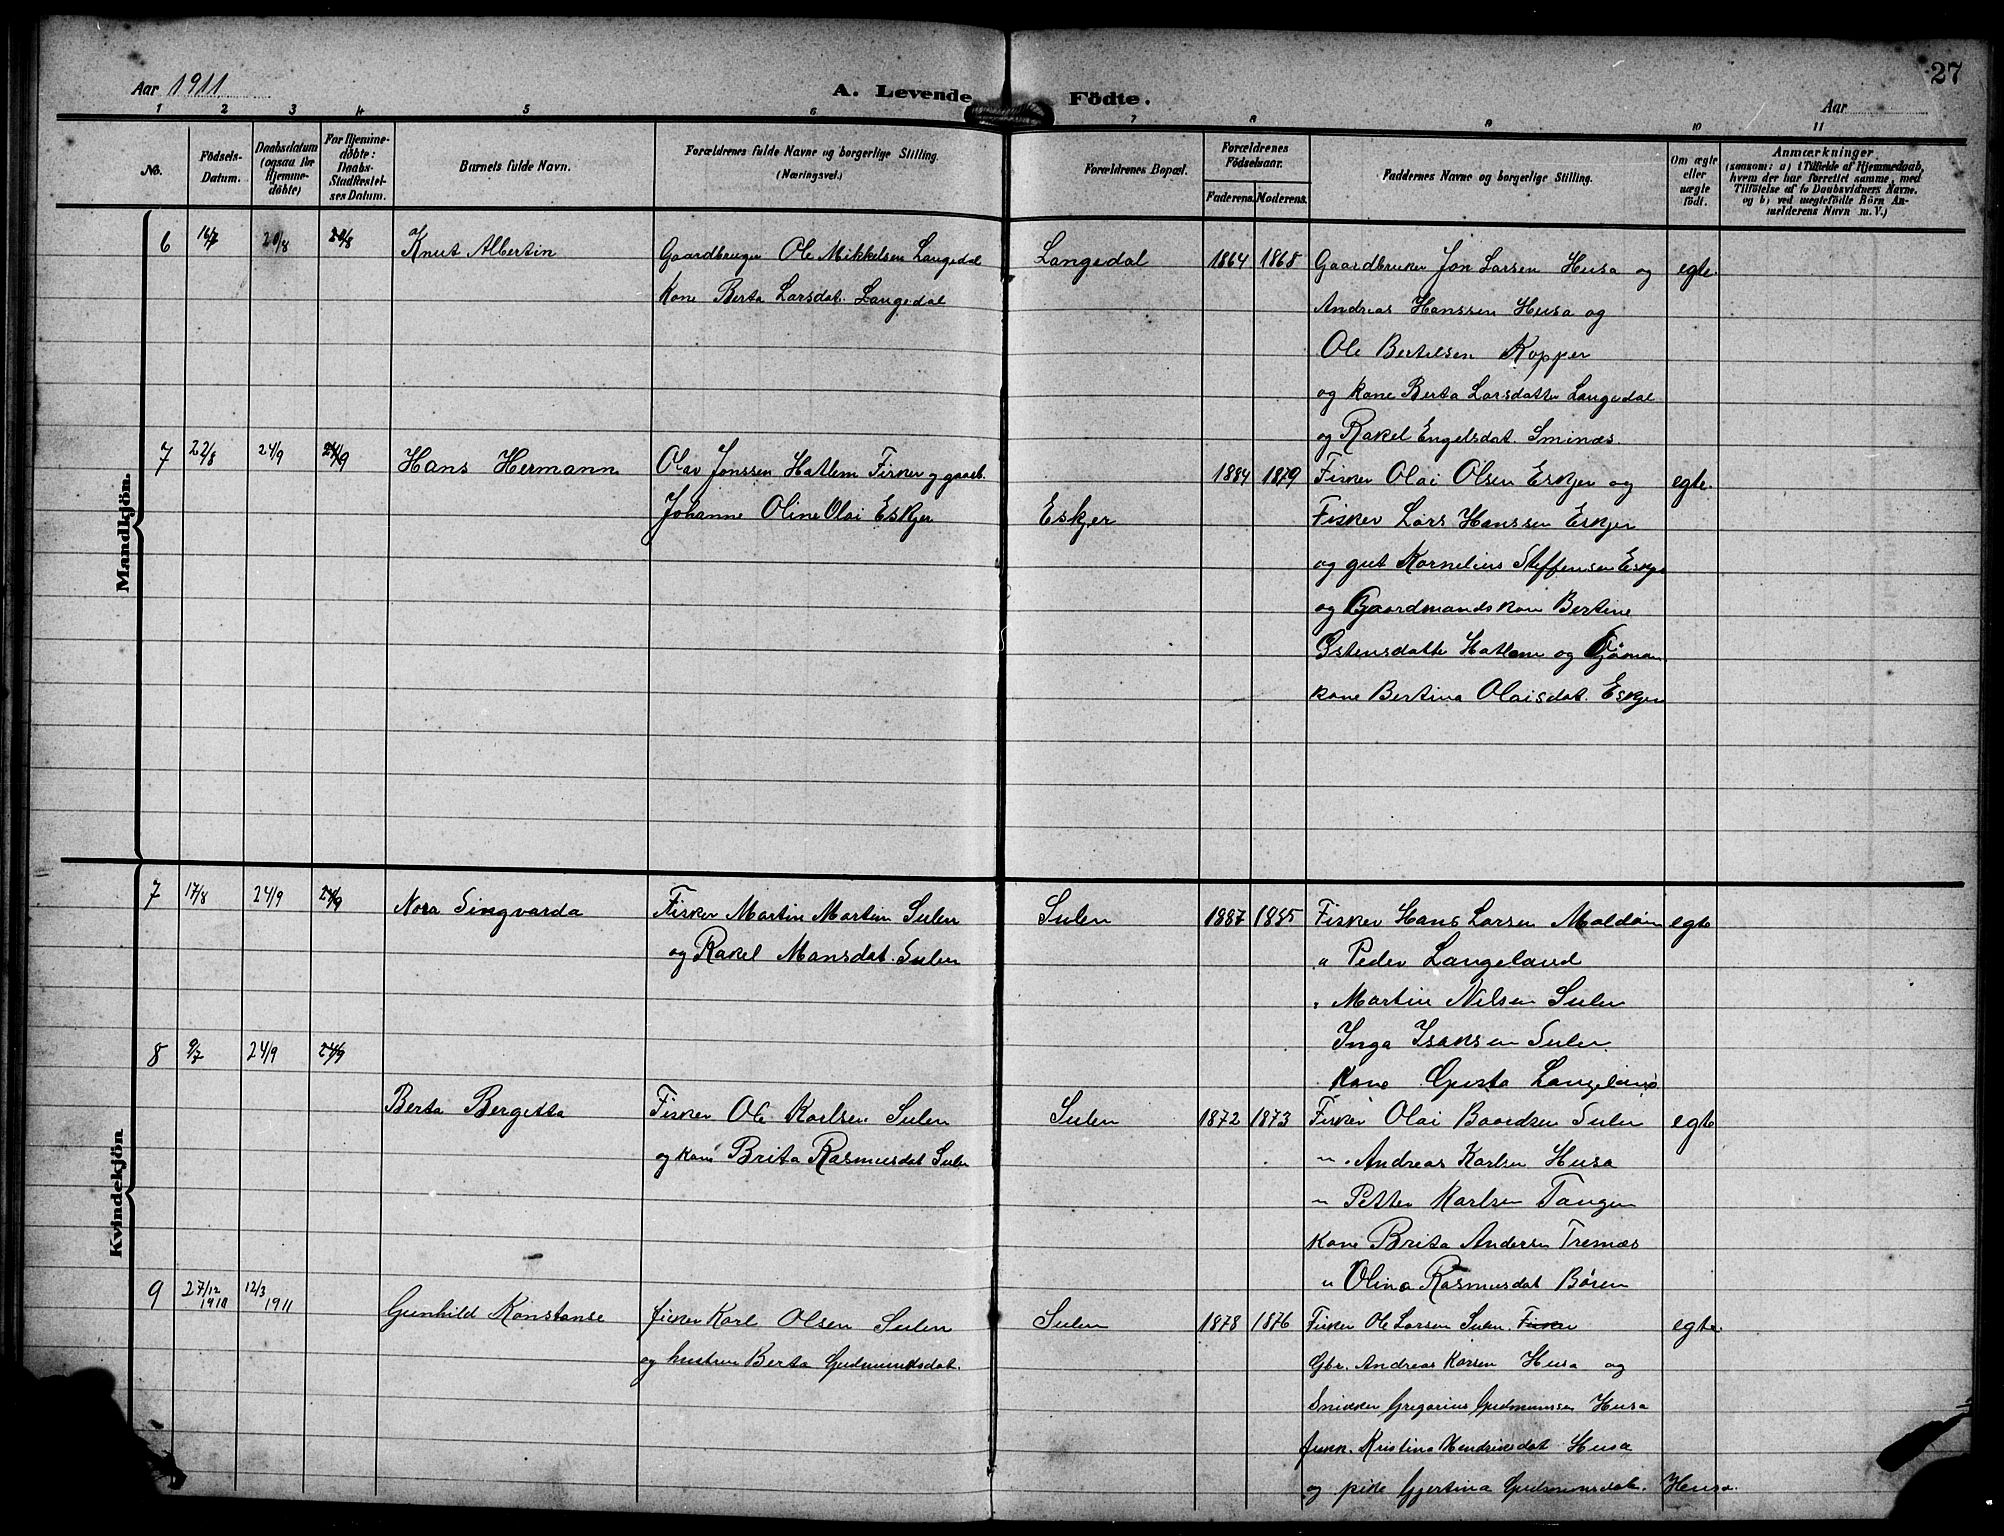 27
Aar 1911
A. Levende Födte.
Aar
1 2 3 4 5 6 7 8 9 10 11
No.
Födsels-Datum.
Daabsdatum (ogsaa for Hjemme-døbte)
For Hjemme-døbte: Daabs-Stadfæstel-ses Datum.
Barnets fulde Navn.
Forældrenes fulde Navne og borgerlige Stilling. (Næringsvei.)
Forældrenes Bopæl.
Forældrenes Fødselsaar.
Faderens. Moderens.
Faddernes Navne og borgerlige Stilling.
Om ægte eller uægte født.
Anmærkninger
(saasom: a) i Tilfælde af Hjemmedaab,
hvem der har forrettet samme, med
Tilføielse af to Daabsvidners Navne.
og b) ved uægtefødte Börn An-
melderens Navn m. V.)
Mandkjön.
6 16/7 20/8 20/8 Knut Albertin Gaardbruger Ole Mikkelsen Langedal Langedal 1864 1868 Gaardbruker Jon Larsen Husa og egte.
Kone Berta Larsdat. Langedal Andreas Hanssen Husa og
Ole Bertelsen Kopper
og kone Berta Larsdatter Langedal
og Rakel Engelsdat. Sminæs
7 22/8 24/9 24/9 Hans Hermann Olav Jonssen Hatlem Fisker og gaarb. 1884 1879 Fisker Olai Olsen Eskjer og egte.
Johanne Oline Olai Eskjer Eskjer Fisker Lars Hanssen Eskjer
og gut Kornelius Steffensen Eskje
og Gaardmandskone Bertine
Ostensdatte Hatlem og
kone Bertina Olaisdat. Eskjer
Kvindekjön
7 17/8 24/9 24/9 Nora Singvarda Fisker Martin Martin Sulen Sulen 1887 1885 Fisker Hans Larsen Moldøen egte
og Rakel Monsdat. Sulen " Peder Langeland
" Martin Nilsen Sulen
Inga Isaksen Sulen
Kone Gusta Langeland
8 9/7 24/9 24/9
Berta Bergitta Fisker Ole Karlsen Sulen Sulen 1872 1873 Fisker Olai Baardsen Sulen egte
og kone Brita Rasmusdat Sulen " Andreas Karlsen Husa
" Petter Karlsen Tangen
Kone Brita Andersen Trenæs
" Olina Rasmusdat Børen
9 27/12 1910 12/3 1911 Gunhild Konstanse fisker Karl Olsen Sulen Sulen 1878 1876 Fisker Ole Larsen Sulen. Fisker egte.
og hustru Berta Gudmundsdat. Gbr. Andreas Karsen Husa og
Snikker Gregorius Gudmunssen Husa
funk. Kristina Hendriksdat Husa
og pike Gjertina Gudmunsdat. Husa.